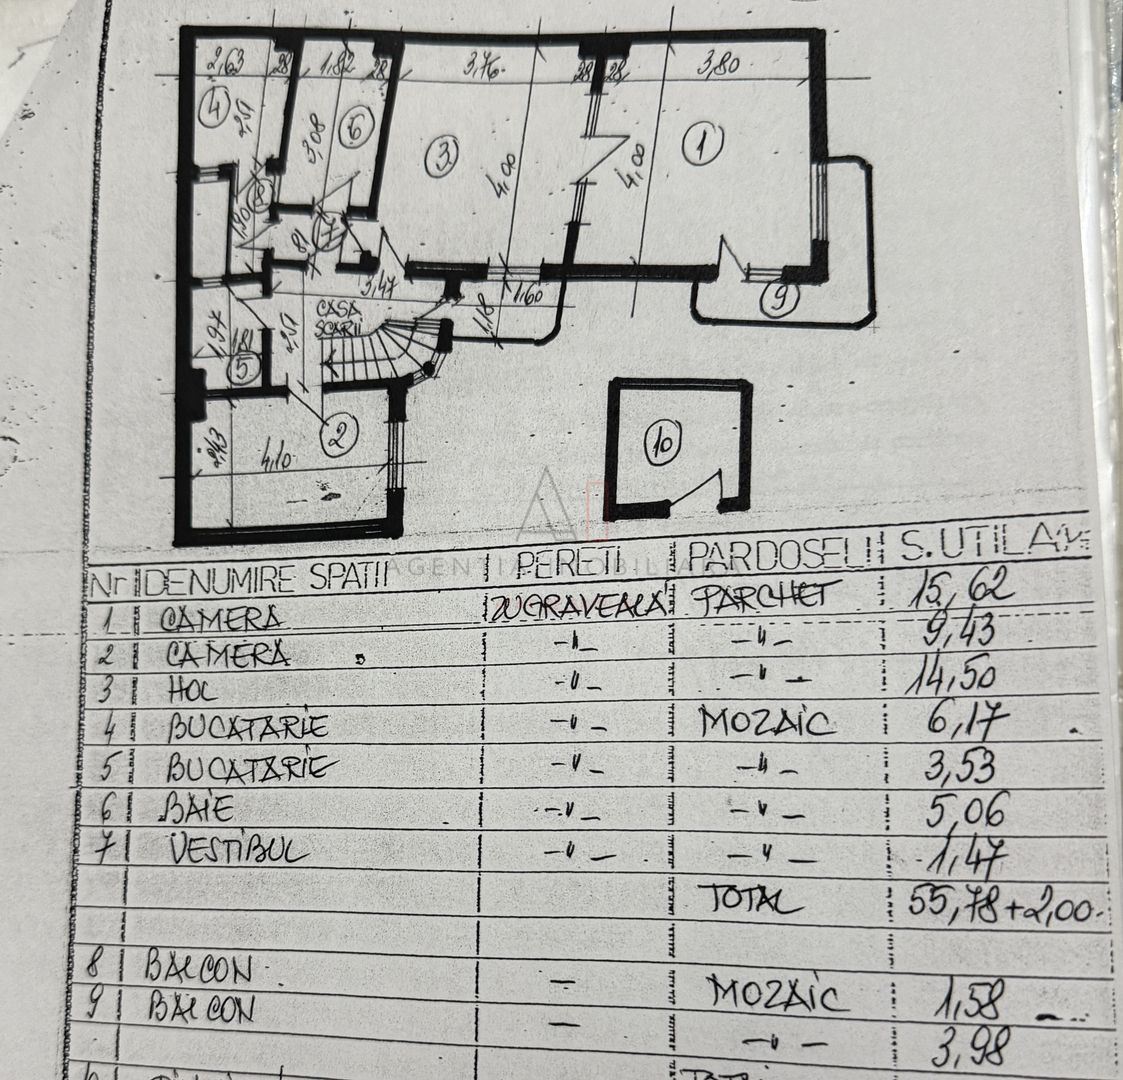 2,63 28 1,82 28 3,76 28 28 3,80
4 2,51 3,08 6 3 4,00 4,00 1
8 1,90 81 7
3,47 1,60 9
CASA
SCARII
1,18
1,97 1,81 2,51
5
2
2,43 4,10
10
AGENTIA IMOBILIARA
Nr DENUMIRE SPATII PERETI PARDOSELI S.UTILA
1 CAMERA ZUGRAVEALA PARCHET 15,62
2 CAMERA -〃- -〃- 9,43
3 HOL -〃- -〃- 14,50
4 BUCATARIE -〃- MOZAIC 6,17
5 BUCATARIE -〃- -〃- 3,53
6 BAIE -〃- -〃- 5,06
7 VESTIBUL -〃- -〃- 1,47
TOTAL 55,78+2,00
8 BALCON - MOZAIC 1,58
9 BALCON - -〃- 3,98